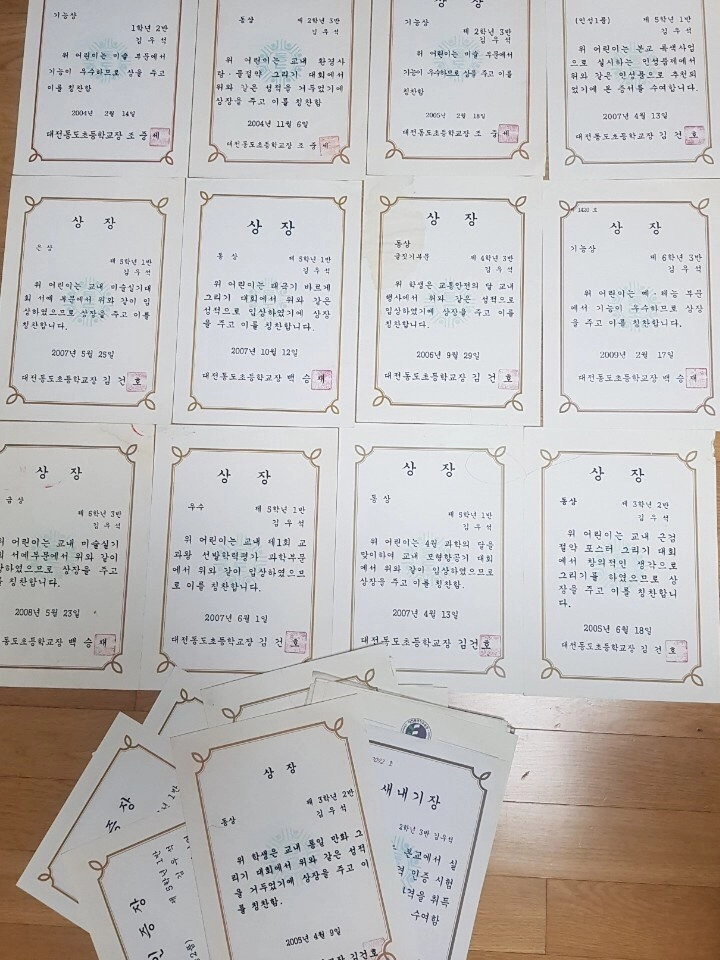 기능상
1학년 2반
김 우 석
위 어린이는 미술 부문에서
기능이 우수하므로 상을 주고
이를 칭찬함
2004년 2월 14일
대전동도초등학교장 조 중
동상 제 2학년 3반
김 우 석
위 어린이는 교내 환경사
랑·물절약 그리기 대회에서
위와 같은 성적을 거두었기에
상장을 주고 이를 칭찬함
2004년 11월 6일
대전동도초등학교장 조 중
기능상
제 2학년 3반
김 우 석
위 어린이는 미술 부문에서
기능이 우수하므로 상을 주고 이를
칭찬함
2005년 2월 18일
대전동도초등학교장 조 중
(인성1품) 제 5학년 1반
김 우 석
위 어린이는 본교 특색사업
으로 실시하는 인성품제에서
위와 같은 인성품으로 추천되
었기에 본 증서를 수여합니다.
2007년 4월 13일
대전동도초등학교장 김 건 호
상 장
은상
제 5학년 1반
김 우 석
위 어린이는 교내 미술실기대
회 서예 부문에서 위와 같이 입
상하였으므로 상장을 주고 이를
칭찬합니다.
2007년 5월 25일
대전동도초등학교장 김 건 호
상 장
동상 제 5학년 1반
김 우 석
위 어린이는 태극기 바르게
그리기 대회에서 위와 같은
성적으로 입상하였기에 상장
을 주고 이를 칭찬합니다.
2007년 10월 12일
대전동도초등학교장 백 승 재
상 장
동상
글짓기부문 제 4학년 3반
김 우 석
위 학생은 교통안전의 달 교내
행사에서 위와 같은 성적으로
입상하였기에 상장을 주고 이를
칭찬합니다.
2006년 9월 29일
대전동도초등학교장 김 건 호
상 장
기능상
제 6학년 3반
김 우 석
위 어린이는 예·체능 부문
에서 기능이 우수하므로 상장
을 주고 이를 칭찬합니다.
2009년 2월 17일
대전동도초등학교장 백 승 재
상 장
금상
제 6학년 3반
김 우 석
위 어린이는 교내 미술실기
회 서예부문에서 위와 같이
상하였으므로 상장을 주고
를 칭찬합니다.
2008년 5월 23일
동도초등학교장 백 승 재
상 장
우수 제 5학년 1반
김 우 석
위 어린이는 교내 제1회 교
과왕 선발학력평가 과학부문
에서 위와 같이 입상하였으므
로 이를 칭찬합니다.
2007년 6월 1일
대전동도초등학교장 김 건 호
상 장
동상
제 5학년 1반
김 우 석
위 어린이는 4월 과학의 달을
맞이하여 교내 모형항공기 대회
에서 위와 같이 입상하였으므로
상장을 주고 이를 칭찬함.
2007년 4월 13일
대전동도초등학교장 김 건 호
상 장
동상 제 3학년 2반
김 우 석
위 어린이는 교내 근검
절약 포스터 그리기 대회
에서 창의적인 생각으로
그리기를 하였으므로 상
장을 주고 이를 칭찬합니
다.
2005년 6월 18일
대전동도초등학교장 김 건 호
상 장
제 3학년 2반
동상 김 우 석
위 학생은 교내 통일 만화 그
리기 대회에서 위와 같은 성적
을 거두었기에 상장을 주고 이
를 칭찬함.
2005년 4월 9일
초등학교장 김건호
새내기장
2학년 3반 김우석
본교에서 실
인증 시험
격을 취득
수여함